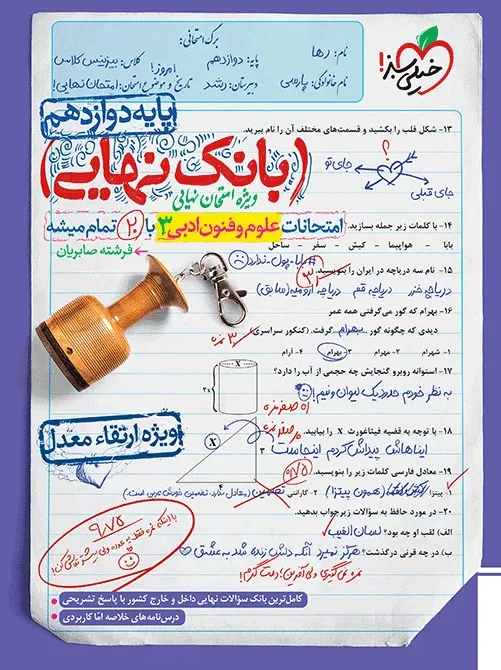 برگ امتحانی:
نام: رها
پایه: دوازدهم
کلاس: بیزنیس کلاس
نام خانوادگی: پارسی
دبیرستان: رشد
امروز!
تاریخ و موضوع امتحان: امتحان نهایی!
خیلی سبز!
پایه دوازدهم
۱۳- شکل قلب را بکشید و قسمت‌های مختلف آن را نام ببرید.
؟
جای تو
جای قبلی
(بانک نهایی)
ویژه امتحان نهایی
امتحانات علوم و فنون ادبی ۳ با ۲۰ تمام میشه
فرشته صابریان
۱۴- با کلمات زیر جمله بسازید.
بابا - هواپیما - کیش - سفر - ساحل
#بابا_پول_ندارد
۱۵- نام سه دریاچه در ایران را بنویسید.
۳
دریاچه خزر دریاچه قم دریاچه ارومیه (سابق)
۱۶- بهرام که گور می‌گرفتی همه عمر
دیدی که چگونه گور ..بهرام.. گرفت. (کنکور سراسری)
۳ نمره
۱- شهرام ۲- مهرام ۳- بهرام ۴- آرام
۱۷- استوانه روبرو گنجایش چه حجمی از آب را دارد؟
x
۲x
به نظر خودم حدود یک لیوان و نیم!
۱۸- با توجه به قضیه فیثاغورث X را بیابید.
ایناهاش پیداش کردم اینجاست
X
۳
۴
ویژه ارتقاء معدل
۱۹- معادل فارسی کلمات زیر را بنویسید.
۱- پیتزا (همون پیتزا) ۲- گارانتی تضمین
۲۰- در مورد حافظ به سؤالات زیر جواب بدهید.
الف) لقب او چه بود؟ لسان الغیب
ب) در چه قرنی درگذشت؟ هرگز نمیرد آنکه دلش زنده شد به عشق
نمره نمی‌گیری ولی آفرین! دمت گرم!
۹/۷۵
کامل‌ترین بانک سؤالات نهایی داخل و خارج کشور با پاسخ تشریحی
درس‌نامه‌های خلاصه امّا کاربردی